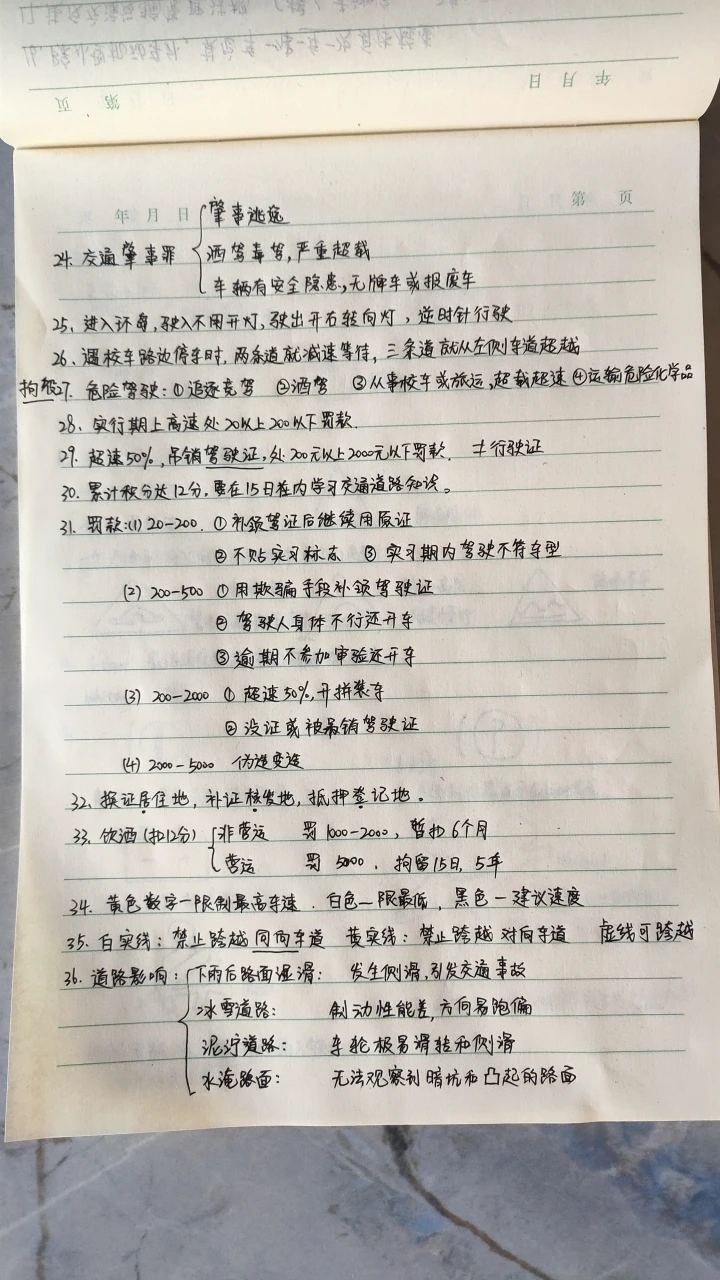 年 月 日
第 页
肇事逃逸
24. 交通肇事罪 酒驾毒驾,严重超载
车辆有安全隐患,无牌车或报废车
25. 进入环岛,驶入不用开灯,驶出开右转向灯,逆时针行驶
26. 遇校车路边停车时,两条道就减速等待,三条道就从左侧车道超越
拘役27. 危险驾驶:①追逐竞驾 ②酒驾 ③从事校车或旅运,超载超速 ④运输危险化学品
28. 实行期上高速处20以上200以下罚款.
29. 超速50%,吊销驾驶证,处200元以上2000元以下罚款. ≠行驶证
30. 累计积分达12分,要在15日在内学习交通道路知识。
31. 罚款:(1) 20-200. ①补领驾证后继续用原证
②不贴实习标志 ③实习期内驾驶不符车型
(2) 200-500 ①用欺骗手段补领驾驶证
②驾驶人身体不行还开车
③逾期不参加审验还开车
(3) 200-2000 ①超速50%,开拼装车
②没证或被吊销驾驶证
(4) 2000-5000 伪造变造
32. 换证居住地,补证核发地,抵押登记地。
33. 饮酒(扣12分) 非营运 罚1000-2000,暂扣6个月
营运 罚5000.拘留15日,5年
34. 黄色数字—限制最高车速.白色—限最低,黑色—建议速度
35. 白实线:禁止跨越同向车道 黄实线:禁止跨越对向车道 虚线可跨越
36. 道路影响:下雨后路面湿滑: 发生侧滑,引发交通事故
冰雪道路: 制动性能差,方向易跑偏
泥泞道路: 车轮极易滑转和侧滑
水淹路面: 无法观察到暗坑和凸起的路面